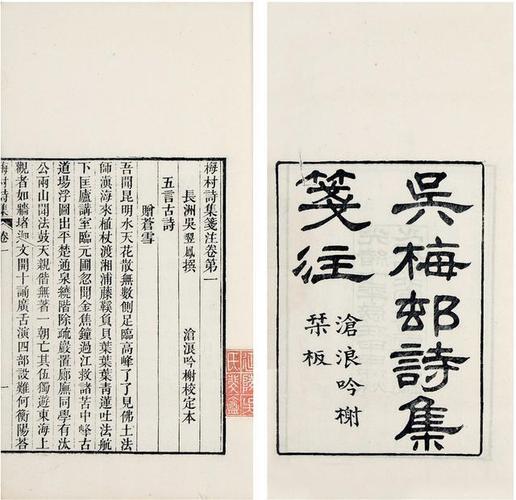 吳梅邨詩集
箋注
滄浪吟榭
栞板
梅村詩集箋注卷第一
長洲吳翌鳳撰 滄浪吟榭校定本
五言古詩
贈蒼雪
吾聞昆明水天花散無數側足臨高峰了了見佛土法
師滇海來植杖渡湘浦藤鞵負貝葉葉葉青蓮吐法航
下匡廬講室臨元圃忽聞金焦鐘過江救諸苦中峰古
道場浮圖出平楚通泉繞階除疏巖置廊廡同學有汰
公兩山聞法鼓天親偕無著一朝亡其伍獨遊東海上
觀者如牆堵迦文開十誦廣舌演四部設難何衡陽答
梅村詩集 卷一 一